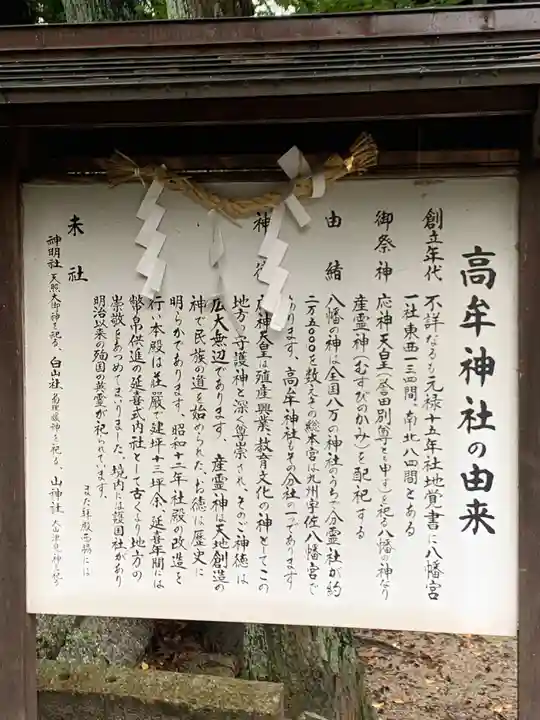 高牟神社の由来
創立年代 不詳なるも元禄十五年社地覚書に八幡宮
一社東西一三四間。南北八四間とある
御祭神 応神天皇(誉田別尊とも申す)を祀る八幡の神なり
産霊神(むすびのかみ)を配祀する
由緒 八幡の神は全国八万の神社のうちで分霊社が約
二万五〇〇〇を数えその総本宮は九州宇佐八幡宮で
あります、高牟神社もその分社の一つであります
神 神天皇は殖産興業、教育文化の神としてこの
地方の守護神と深く尊崇され、そのご神徳は
広大無辺であります、産霊神は天地創造の
神で民族の道を始められた、お徳は歴史に
明らかであります。昭和十二年社殿の改造を
行い本殿は荘厳で建坪十三坪余、延喜年間には
幣帛供進の延喜式内社として古くより地方の
崇敬をあつめてまいりました、境内には護国社があり
明治以来の殉国の英霊が祀られています。
また社殿西脇には
末社 神明社 天照大御神を祀る、白山社 菊理媛神を祀る、山神社